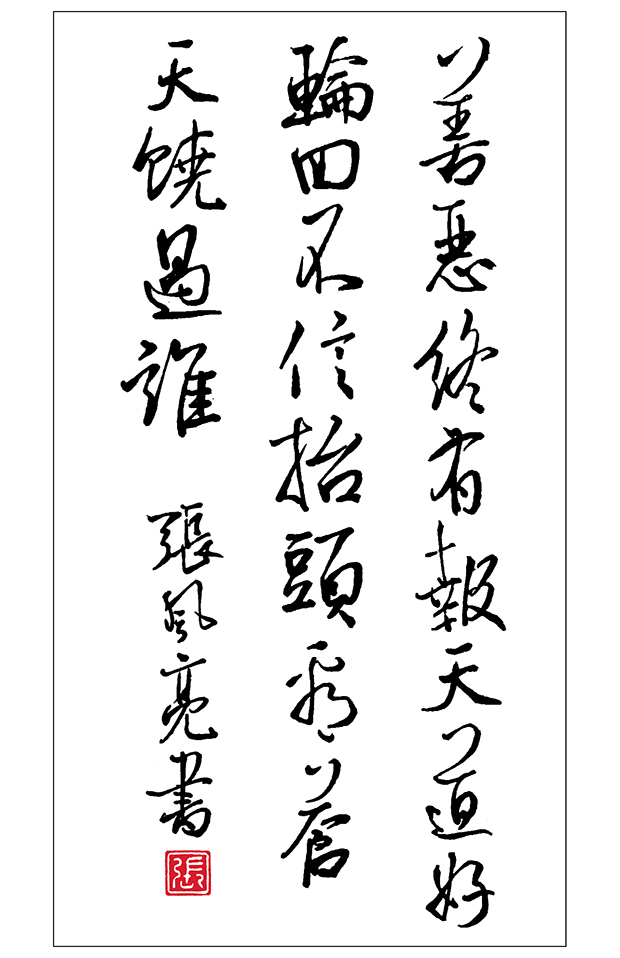 善惡終有報天道好
輪回不信抬頭看蒼
天饒過誰
張風亮書
張